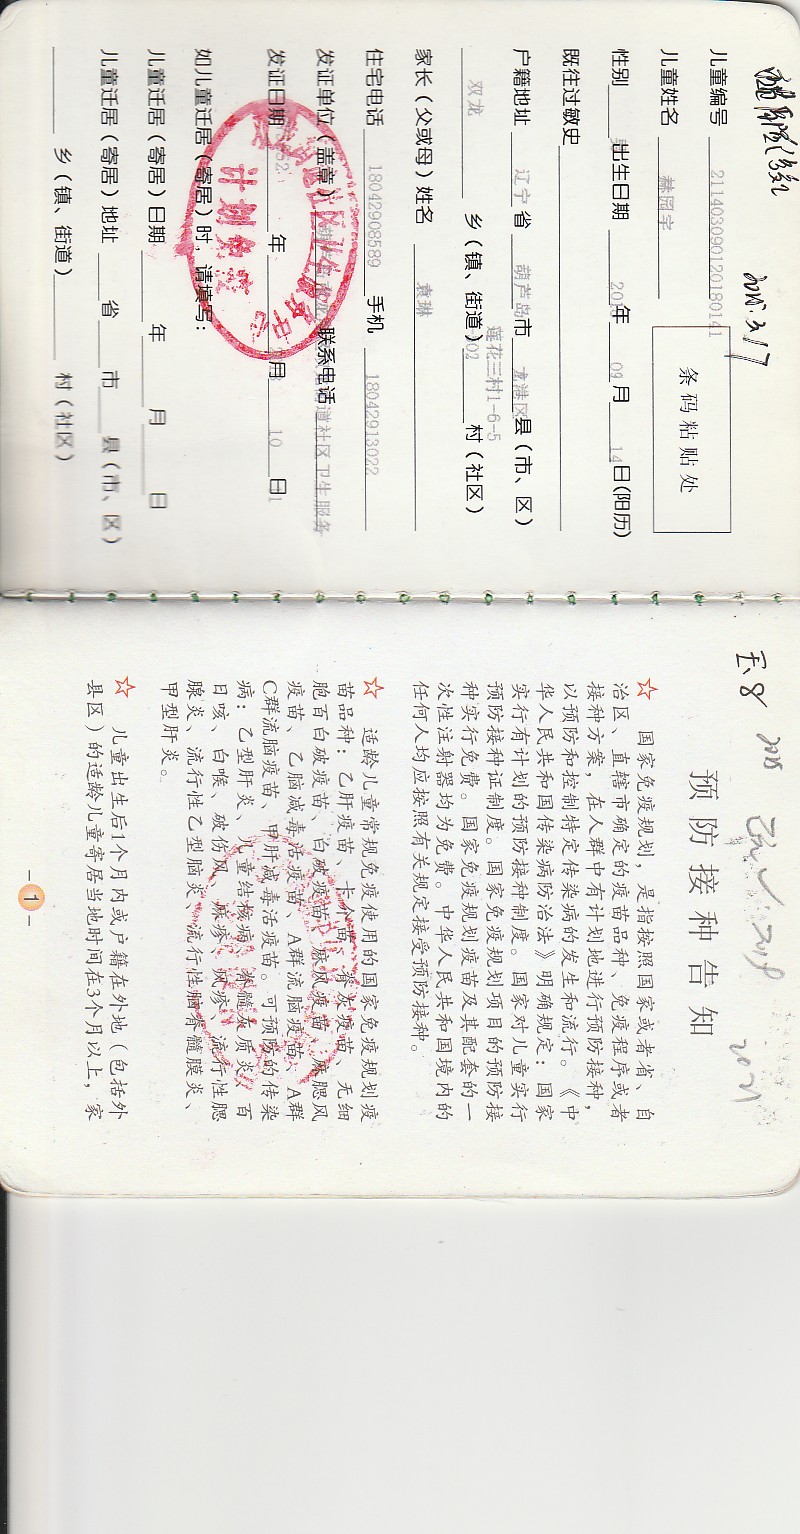 2018.3.17
儿童编号 211403090120180141
条码粘贴处
儿童姓名 赫园宇
性别 出生日期 年 09月 14日(阳历)
既往过敏史
户籍地址 辽宁省 葫芦岛市 龙港区县(市、区)
莲花三村1-6-5
双龙 乡(镇、街道) 村(社区)
家长(父或母)姓名 袁琳
住宅电话 18042908589 手机 18042913022
发证单位(盖章) 联系电话 道社区卫生服务
发证日期 年 月 10 日
计划免疫
如儿童迁居(寄居)时,请填写:
儿童迁居(寄居)日期 年 月 日
儿童迁居(寄居)地址 省 市 县(市、区)
乡(镇、街道) 村(社区)
2019
2021
预防接种告知
☆ 国家免疫规划,是指按照国家或者省、自
治区、直辖市确定的疫苗品种、免疫程序或者
接种方案,在人群中有计划地进行预防接种,
以预防和控制特定传染病的发生和流行。《中
华人民共和国传染病防治法》明确规定:国家
实行有计划的预防接种制度。国家对儿童实行
预防接种证制度。国家免疫规划项目的预防接
种实行免费。国家免疫规划疫苗及其配套的一
次性注射器均为免费。中华人民共和国境内的
任何人均应按照有关规定接受预防接种。
☆ 适龄儿童常规免疫使用的国家免疫规划疫
苗品种:乙肝疫苗、卡介苗、脊灰疫苗、无细
胞百白破疫苗、白破疫苗、麻风疫苗、麻腮风
疫苗、乙脑减毒活疫苗、A群流脑疫苗、A群
C群流脑疫苗、甲肝减毒活疫苗。可预防的传染
病:乙型肝炎、儿童结核病、脊髓灰质炎、百
日咳、白喉、破伤风、麻疹、风疹、流行性腮
腺炎、流行性乙型脑炎、流行性脑脊髓膜炎、
甲型肝炎。
☆ 儿童出生后1个月内或户籍在外地(包括外
县区)的适龄儿童寄居当地时间在3个月以上,家
-1-